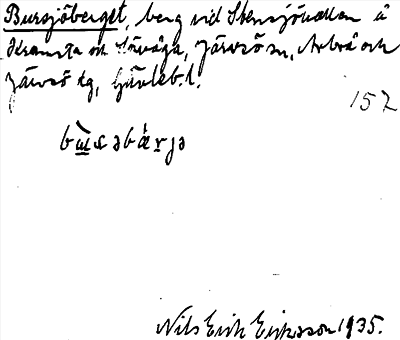 Bursjöberget, berg vid Stensjövallen å
Kramsta o. Säväga, Järvsö sn, Arbrå och
Järvsö tg, Gävleb. l.
157
Nils Erik Eriksson 1935.